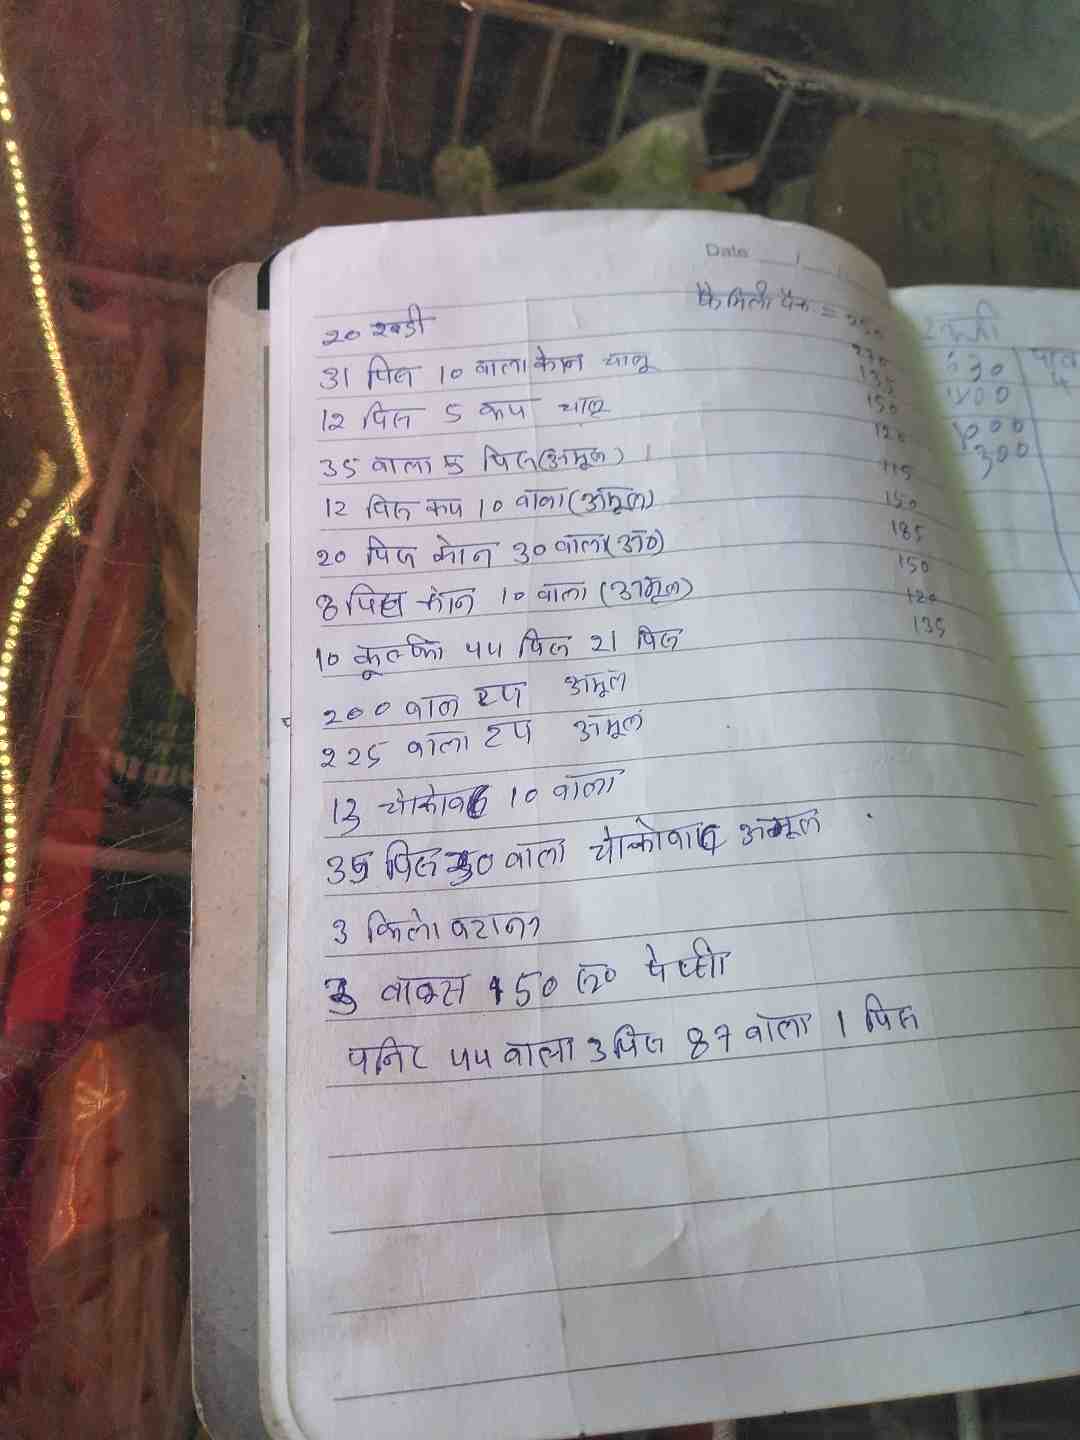 Date
फैमिली पैक = 250
20 रबडी
270
31 पिस 10 वाला कोन चालू
135
12 पिस 5 कप चालू
150
35 वाला 5 पिस (अमूल)
120
12 पिस कप 10 वाला (अमूल)
115
20 पिस कोन 30 वाला (अ०)
150
8 पिस कोन 10 वाला (अमूल)
185
10 कूल्फी 44 पिस 21 पिस
150
200 वाल टप अमूल
120
225 वाला टप अमूल
135
13 चोकोबा 10 वाला
35 पिस 30 वाला चोकोबा अमूल
3 किलो वटाना
3 वाक्स 150 रु० पेप्सी
पनिर 44 वाला 3 पिस 87 वाला 1 पिस
400
300